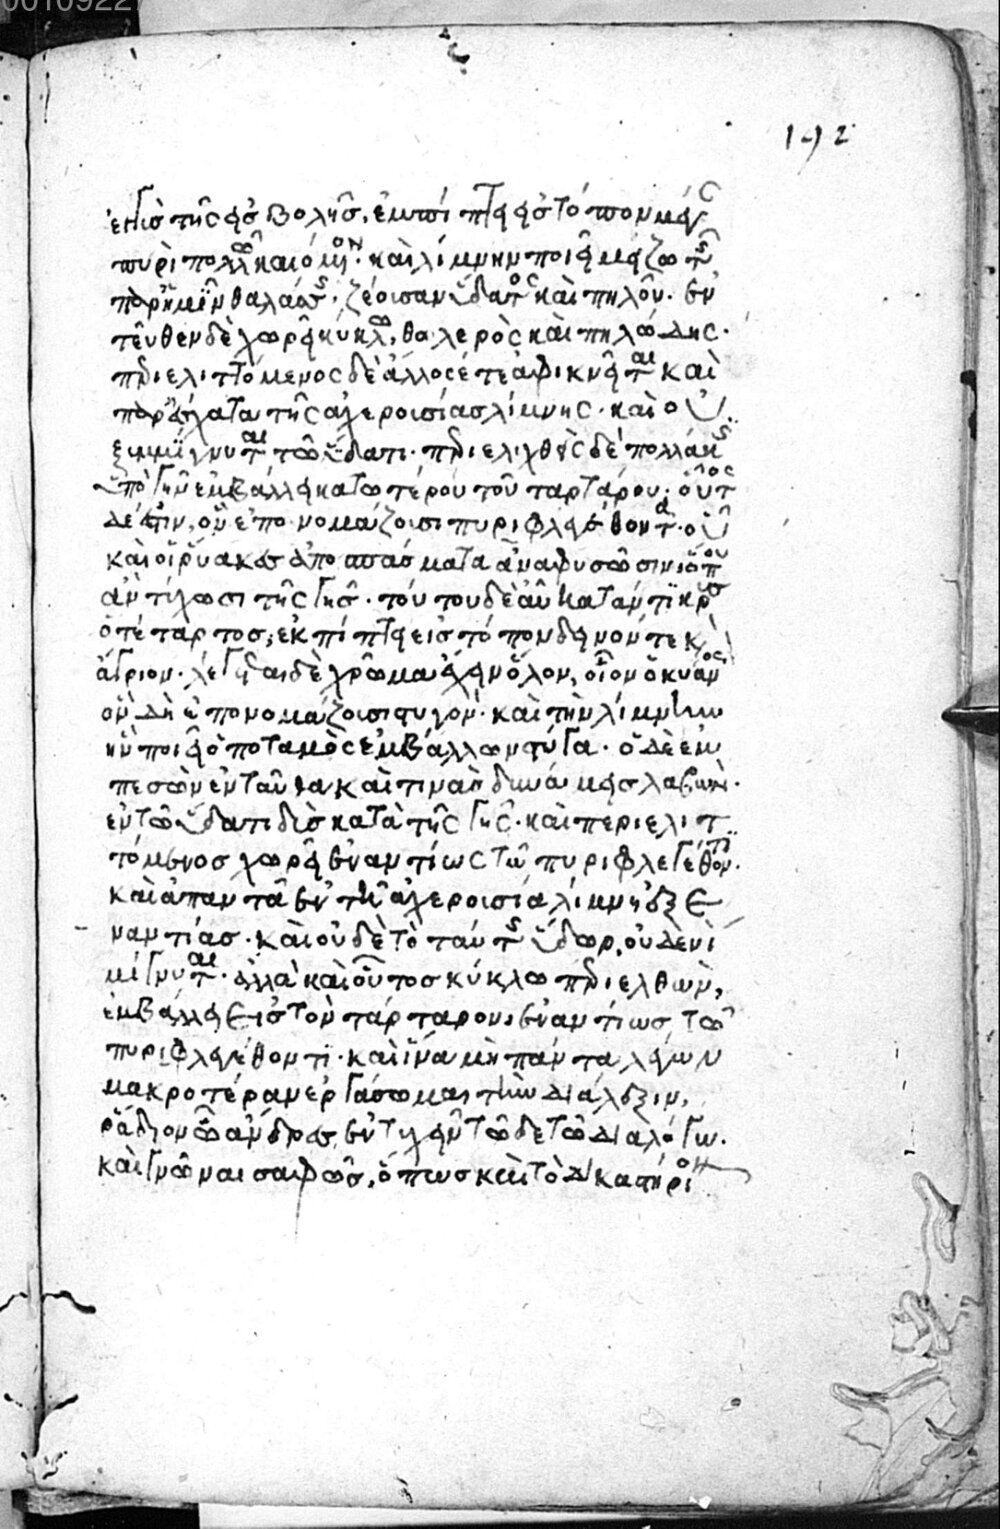 00109227
192
ἐγγὺς τῆς ἐσβολῆς, ἐμπίπτει εἰς τόπον μέγαν
πυρὶ πολλῷ καιόμενον· καὶ λίμνην ποιεῖ μείζω τῆς
παρ' ἡμῖν θαλάσσης, ζέουσαν ὕδατος καὶ πηλοῦ. ἐν
τεῦθεν δὲ χωρεῖ κύκλῳ, θολερὸς καὶ πηλώδης·
περιελιττόμενος δὲ ἄλλοσέ τε ἀφικνεῖται καὶ
παρ' ἔσχατα τῆς ἀχερουσίας λίμνης· καὶ οὐ
ξυμμίγνυται τῷ ὕδατι· περιελιχθεὶς δὲ πολλάκις
ὑπὸ γῆν ἐμβάλλει κατωτέρου τοῦ ταρτάρου· οὗτος
δέ ἐστιν, ὃν ἐπονομάζουσι πυριφλεγέθοντα· οὗ
καὶ οἱ ῥύακες ἀποσπάσματα ἀναφυσῶσιν ὅπου
ἂν τύχωσι τῆς γῆς· τούτου δὲ αὖ καταντικρὺς
ὁ τέταρτος, ἐκπίπτει εἰς τόπον δεινόν τε καὶ
ἄγριον· λέγεται δὲ χρῶμα ἔχειν ὅλον, οἷον ὁ κυανός
ὃν δὴ ἐπονομάζουσι στυγόν· καὶ τὴν λίμνην
ἣν ποιεῖ ὁ ποταμὸς ἐμβάλλων στύγα· ὁ δὲ ἐμ
πεσὼν ἐνταῦθα καὶ τινας δυνάμεις λαβὼν
ἐν τῷ ὕδατι δὺς κατὰ τῆς γῆς· καὶ περιελιτ
τόμενος χωρεῖ ἐναντίως τῷ πυριφλεγέθοντι·
καὶ ἀπαντᾷ ἐν τῇ ἀχερουσίᾳ λίμνῃ ἐξ ἐ
ναντίας· καὶ οὐδὲ τὸ ταύτης ὕδωρ, οὐδενὶ
μίγνυται· ἀλλὰ καὶ οὗτος κύκλῳ περιελθὼν,
ἐμβάλλει εἰς τὸν τάρταρον, ἐναντίως τῷ
πυριφλεγέθοντι· καὶ ἵνα μὴ πάντα λέγων
μακροτέραν ἐργάσωμαι τὴν διάλεξιν,
ῥᾴδιον ὦ ἄνδρες ἐντυχεῖν τῷδε τῷ διαλόγῳ.
καὶ γνῶναι σαφῶς, ὅπως καὶ τὸ δικαστήριον